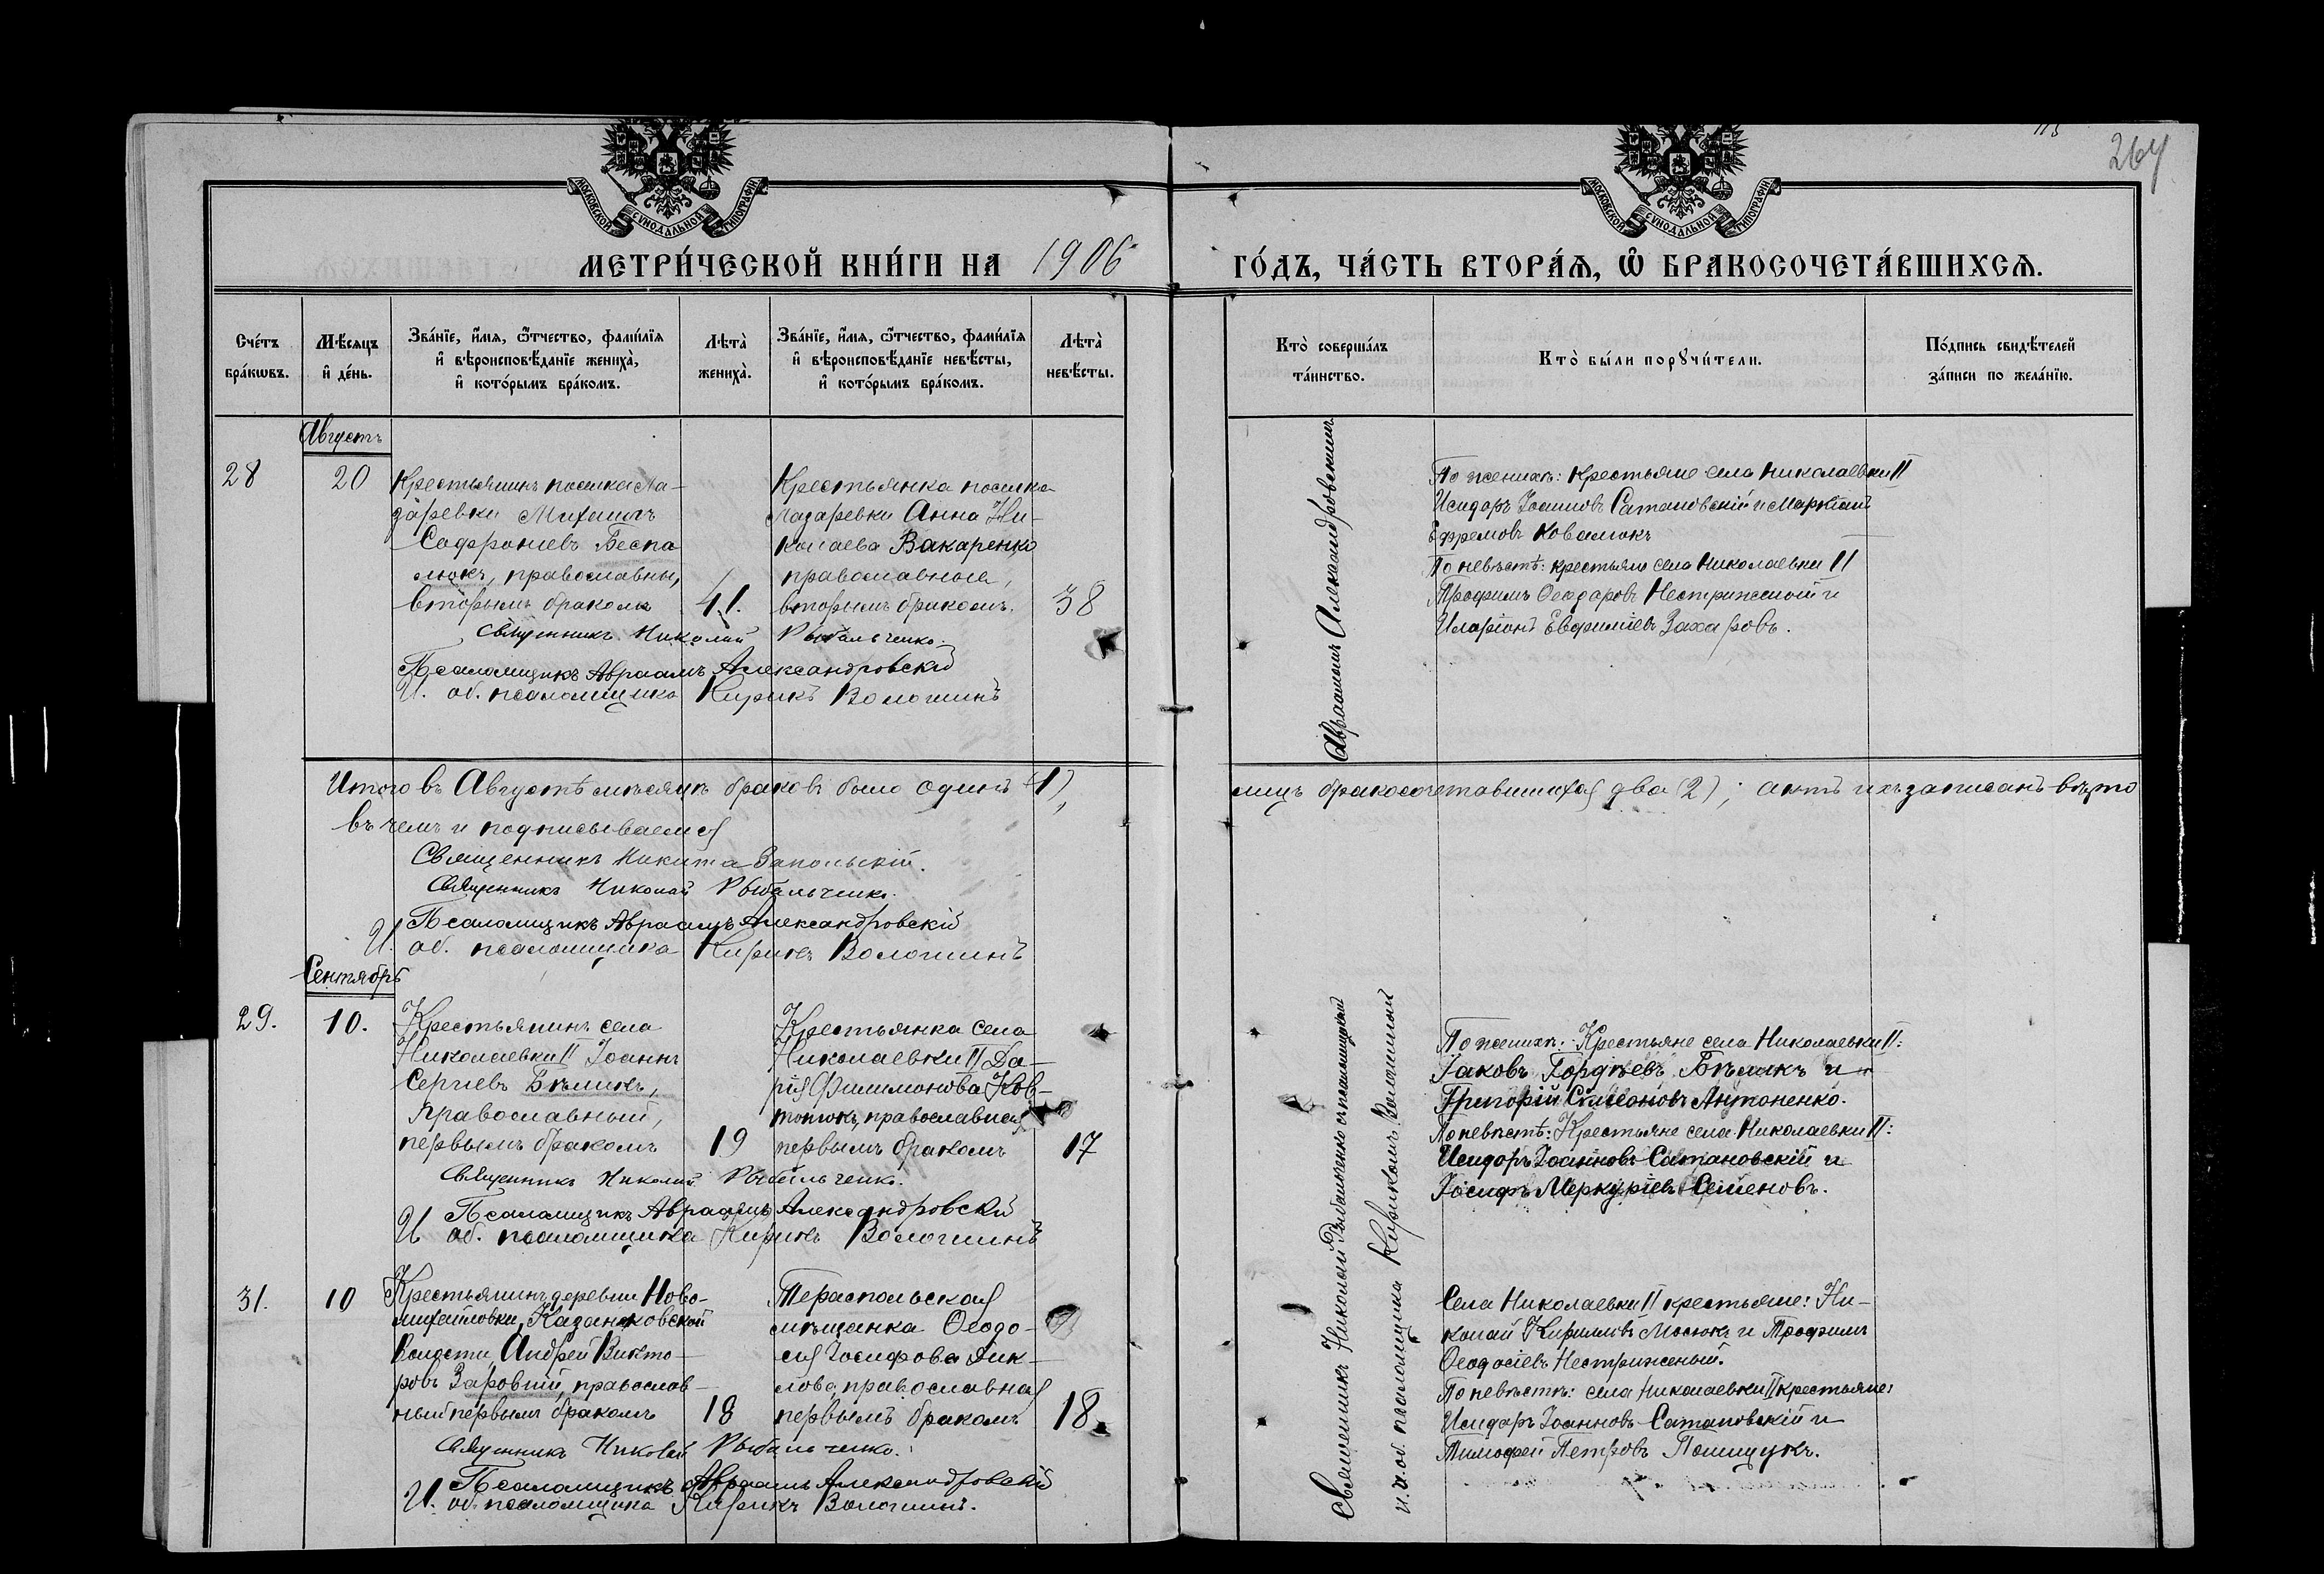 115
264
МОСКОВСКОЙ СѴНОДАЛЬНОЙ ТИПОГРАФІИ
МОСКОВСКОЙ СѴНОДАЛЬНОЙ ТИПОГРАФІИ
МЕТРИ́ЧЕСКОЙ КНИ́ГИ НА 1906
ГО́ДЪ, ЧА́СТЬ ВТОРА́Ѧ, Ѽ БРАКОСОЧЕТА́ВШИХСѦ.
Сче́тъ
бра́кѡвъ.
Мѣ́сяцъ
и҆ де́нь.
Зва́нїе, и҆́мя, ѻ҆́тчество, фами́лїя
и҆ вѣроисповѣ́данїе жениха̀,
и҆ кото́рымъ бра́комъ.
Лѣта̀
жениха̀.
Зва́нїе, и҆́мя, ѻ҆́тчество, фами́лїя
и҆ вѣроисповѣ́данїе невѣ́сты,
и҆ кото́рымъ бра́комъ.
Лѣта̀
невѣ́сты.
Кто̀ соверша́лъ
та́инство.
Кто̀ бы́ли порꙋчи́тели.
По́дпись свидѣ́телей
за́писи по жела́нїю.
Августъ
28
20
Крестьянинъ поселка Ла-
заревки Михаилъ
Софроніевъ Беспа
люкъ, православны,
вторымъ бракомъ
41.
Крестьянка поселка
Лазаревки Анна Ни-
колаева Вакаренко
православная,
вторымъ бракомъ.
38
Священникъ Николай Рыбальченко.
Псаломщикъ Авраамъ Александровскій
И. об. псаломщика Кирикъ Волошинъ
Авраамомъ Александровскимъ
По женихѣ: крестьяне села Николаевки II
Исидоръ Іоанновъ Сатановскій и Маркіанъ
Ефремовъ Ковалюкъ
По невѣстѣ: крестьяне села Николаевки II
Трофимъ Ѳеодоровъ Нестриженый и
Иларіонъ Евфиміевъ Захаровъ.
Итого въ Августѣ мѣсяцѣ браковъ было одинъ (1),
лицъ бракосочетавшихся два (2); актъ ихъ записанъ вѣрно
въ чемъ и подписываемся
Священникъ Никита Запольскій.
Священникъ Николай Рыбальченко.
Псаломщикъ Авраамъ Александровскій
И. об. псаломщика Кирикъ Волошинъ
Сентябрь
29.
10.
Крестьянинъ села
Николаевки II Іоаннъ
Сергіевъ Бѣликъ,
Православный,
первымъ бракомъ
19
Крестьянка села
Николаевки II Да-
рія Филимонова Ков-
тонюкъ, православная
первымъ бракомъ
17
Священникъ Николай Рыбальченко.
Псаломщикъ Авраамъ Александровскій
И об. псаломщика Кирикъ Волошинъ
Священникъ Николай Рыбальченко съ псаломщикомъ
и и. об. псаломщика Кирикомъ Волошинымъ
По женихѣ: Крестьяне села Николаевки II:
Іаковъ Гордѣевъ Бѣликъ и
Григорій Симеоновъ Антоненко.
По невѣстѣ: Крестьяне села Николаевки II:
Исидоръ Іоанновъ Сатановскій и
Іосифъ Меркуріевъ Семеновъ.
31.
10
Крестьянинъ деревни Ново-
михайловки, Казанковской
Волости, Андрей Викто-
ровъ Заровний, православ-
ный первымъ бракомъ
18
Тераспольская
мѣщанка Ѳеодо-
сія Іосифова Дик-
лова, православная
первымъ бракомъ
18.
Священникъ Николай Рыбальченко.
Псаломщикъ Авраамъ Александровскій
И. об. псаломщика Кирикъ Волошинъ.
Села Николаевки II крестьяне: Ни-
колай Кирилловъ Мосюкъ и Трофимъ
Ѳеодосіевъ Нестриженый.
По невѣстѣ: села Николаевки II крестьяне:
Исидоръ Іоанновъ Сатановскій и
Тимофей Петровъ Полищукъ.